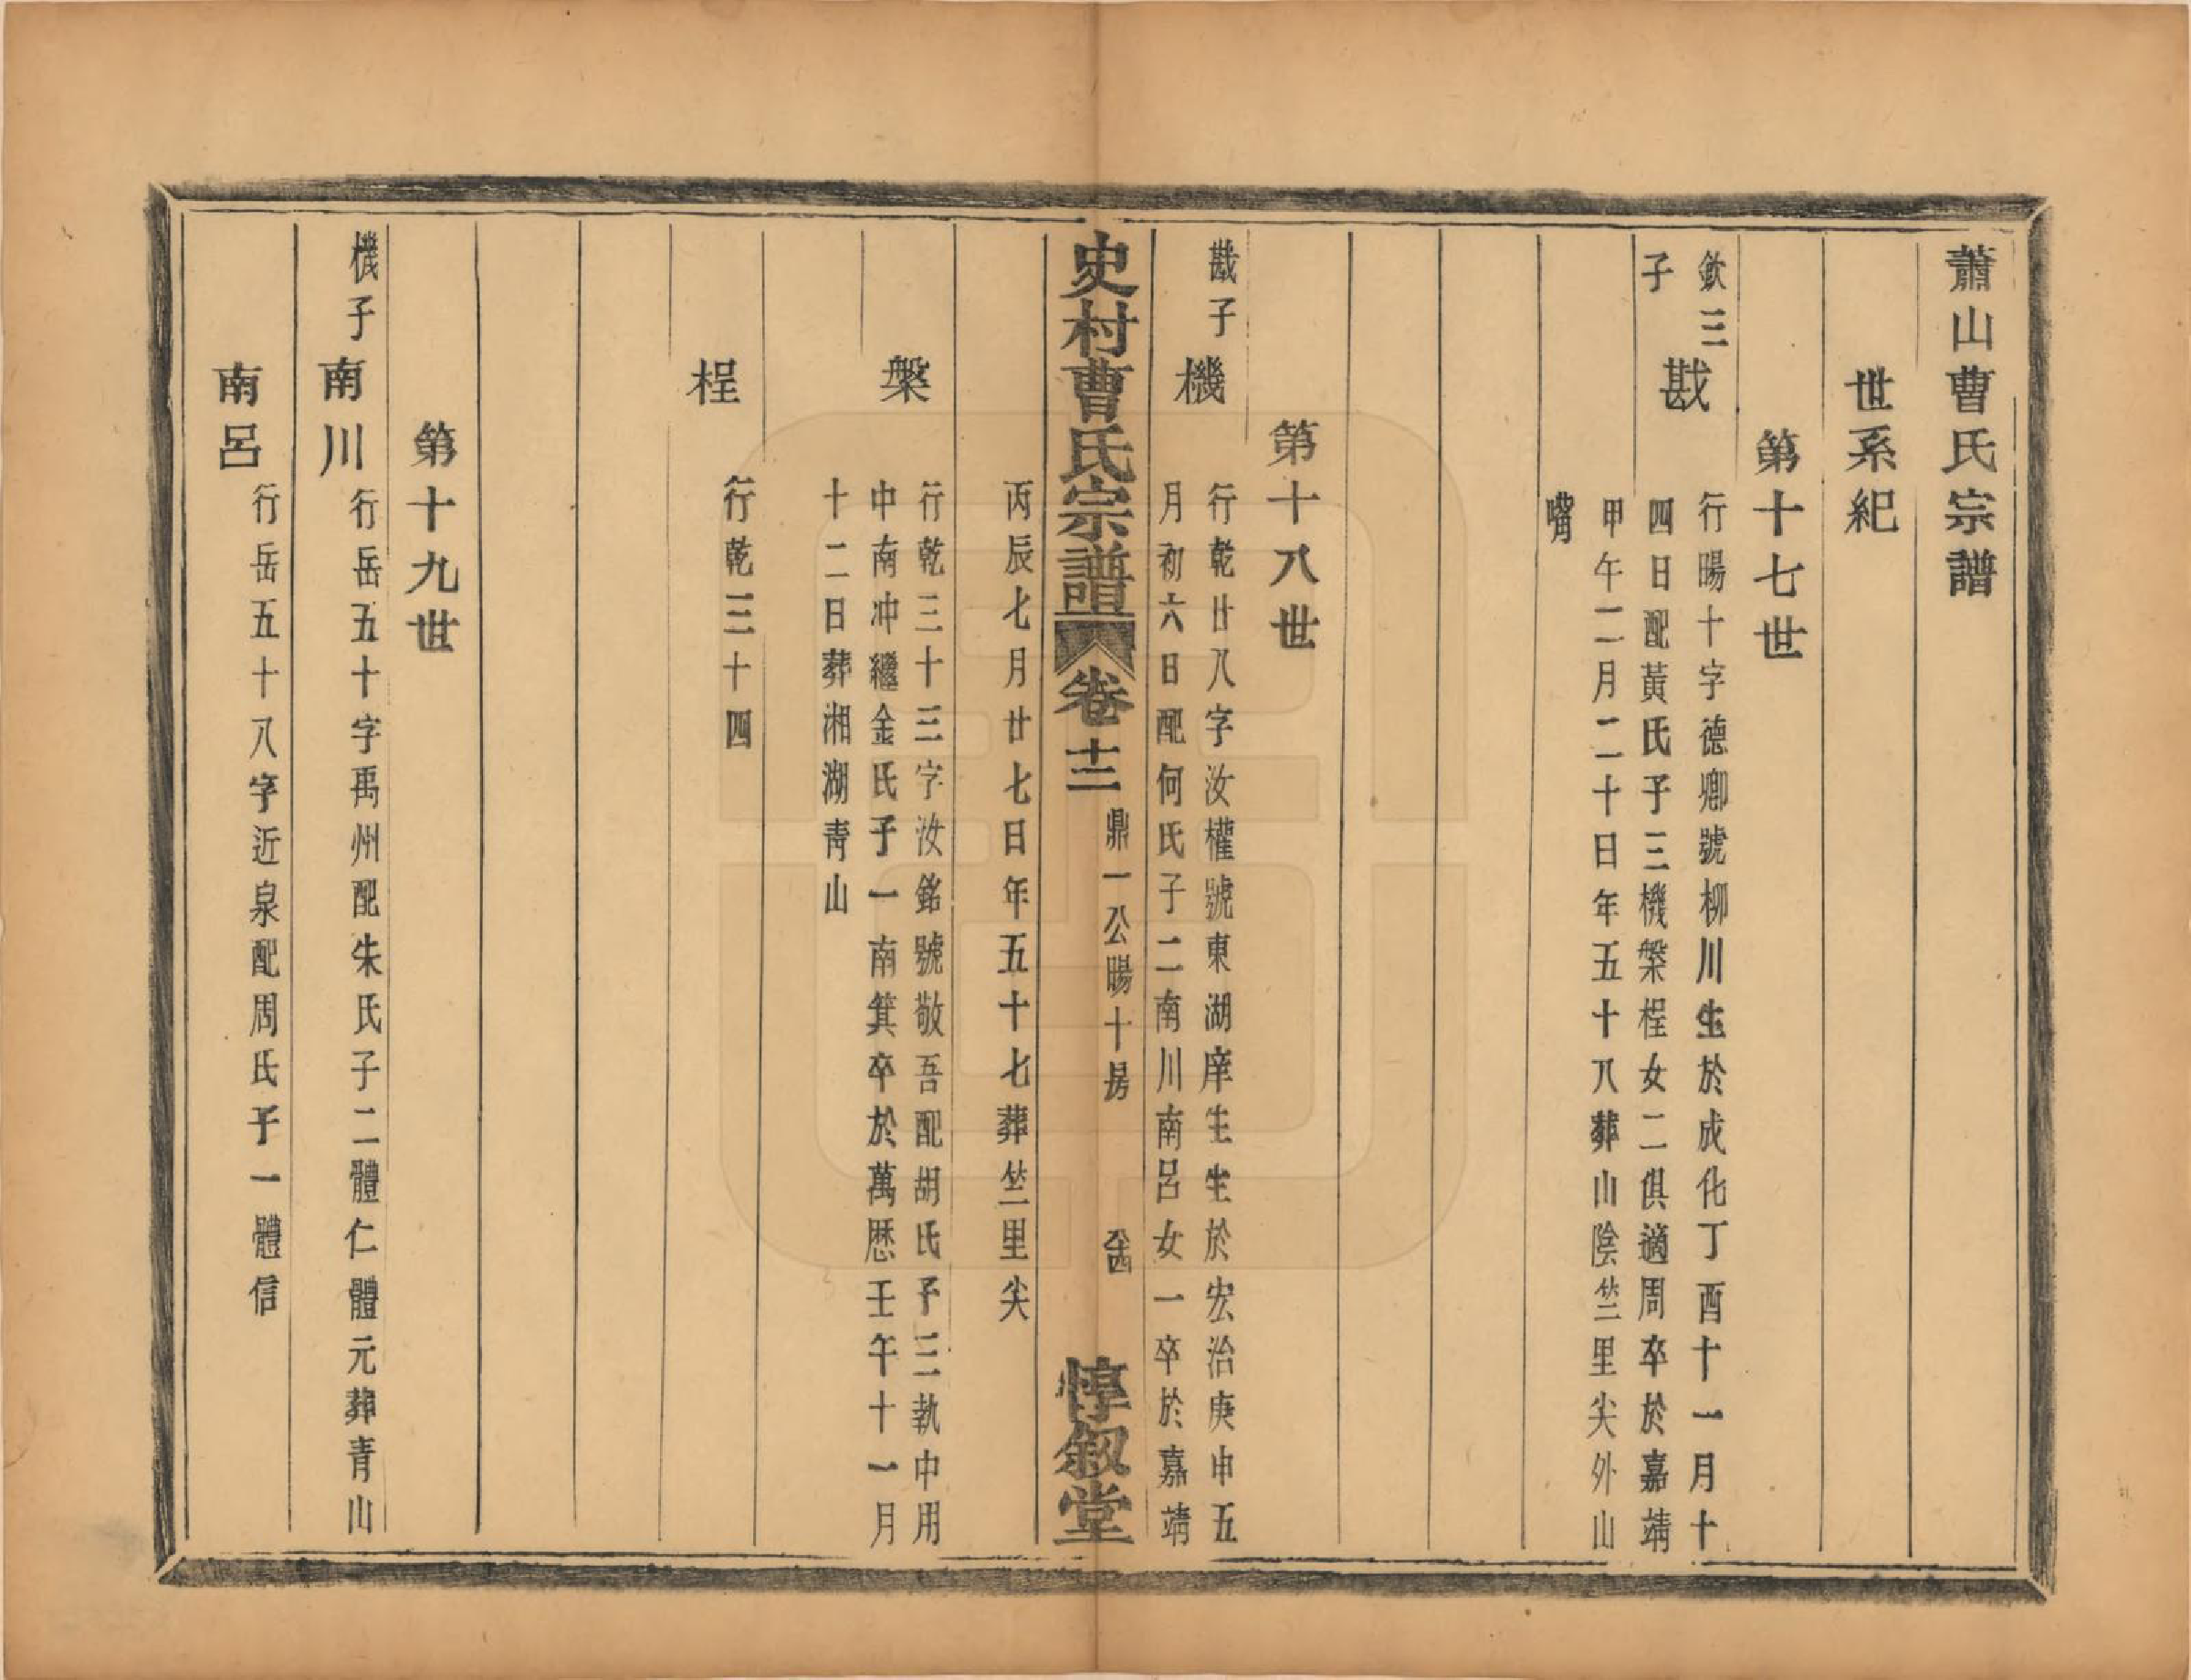 蕭山曹氏宗譜
世系紀
第十七世
欽三子
戡
行暘十字德卿號柳川生於成化丁酉十一月十
四日配黃氏子三機槃桯女二俱適周卒於嘉靖
甲午二月二十日年五十八葬山陰竺里尖外山
嘴
第十八世
戡子
機
行乾廿八字汝權號東湖庠生生於宏治庚申五
月初六日配何氏子二南川南呂女一卒於嘉靖
史村曹氏宗譜 卷十二 鼎一公暘十房 惇敘堂
丙辰七月廿七日年五十七葬竺里尖
槃
行乾三十三字汝銘號敬吾配胡氏子三執中用
中南冲繼金氏子一南箕卒於萬歷壬午十一月
十二日葬湘湖青山
桯
行乾三十四
第十九世
機子
南川
行岳五十字禹州配朱氏子二體仁體元葬青山
南呂
行岳五十八字近泉配周氏子一體信